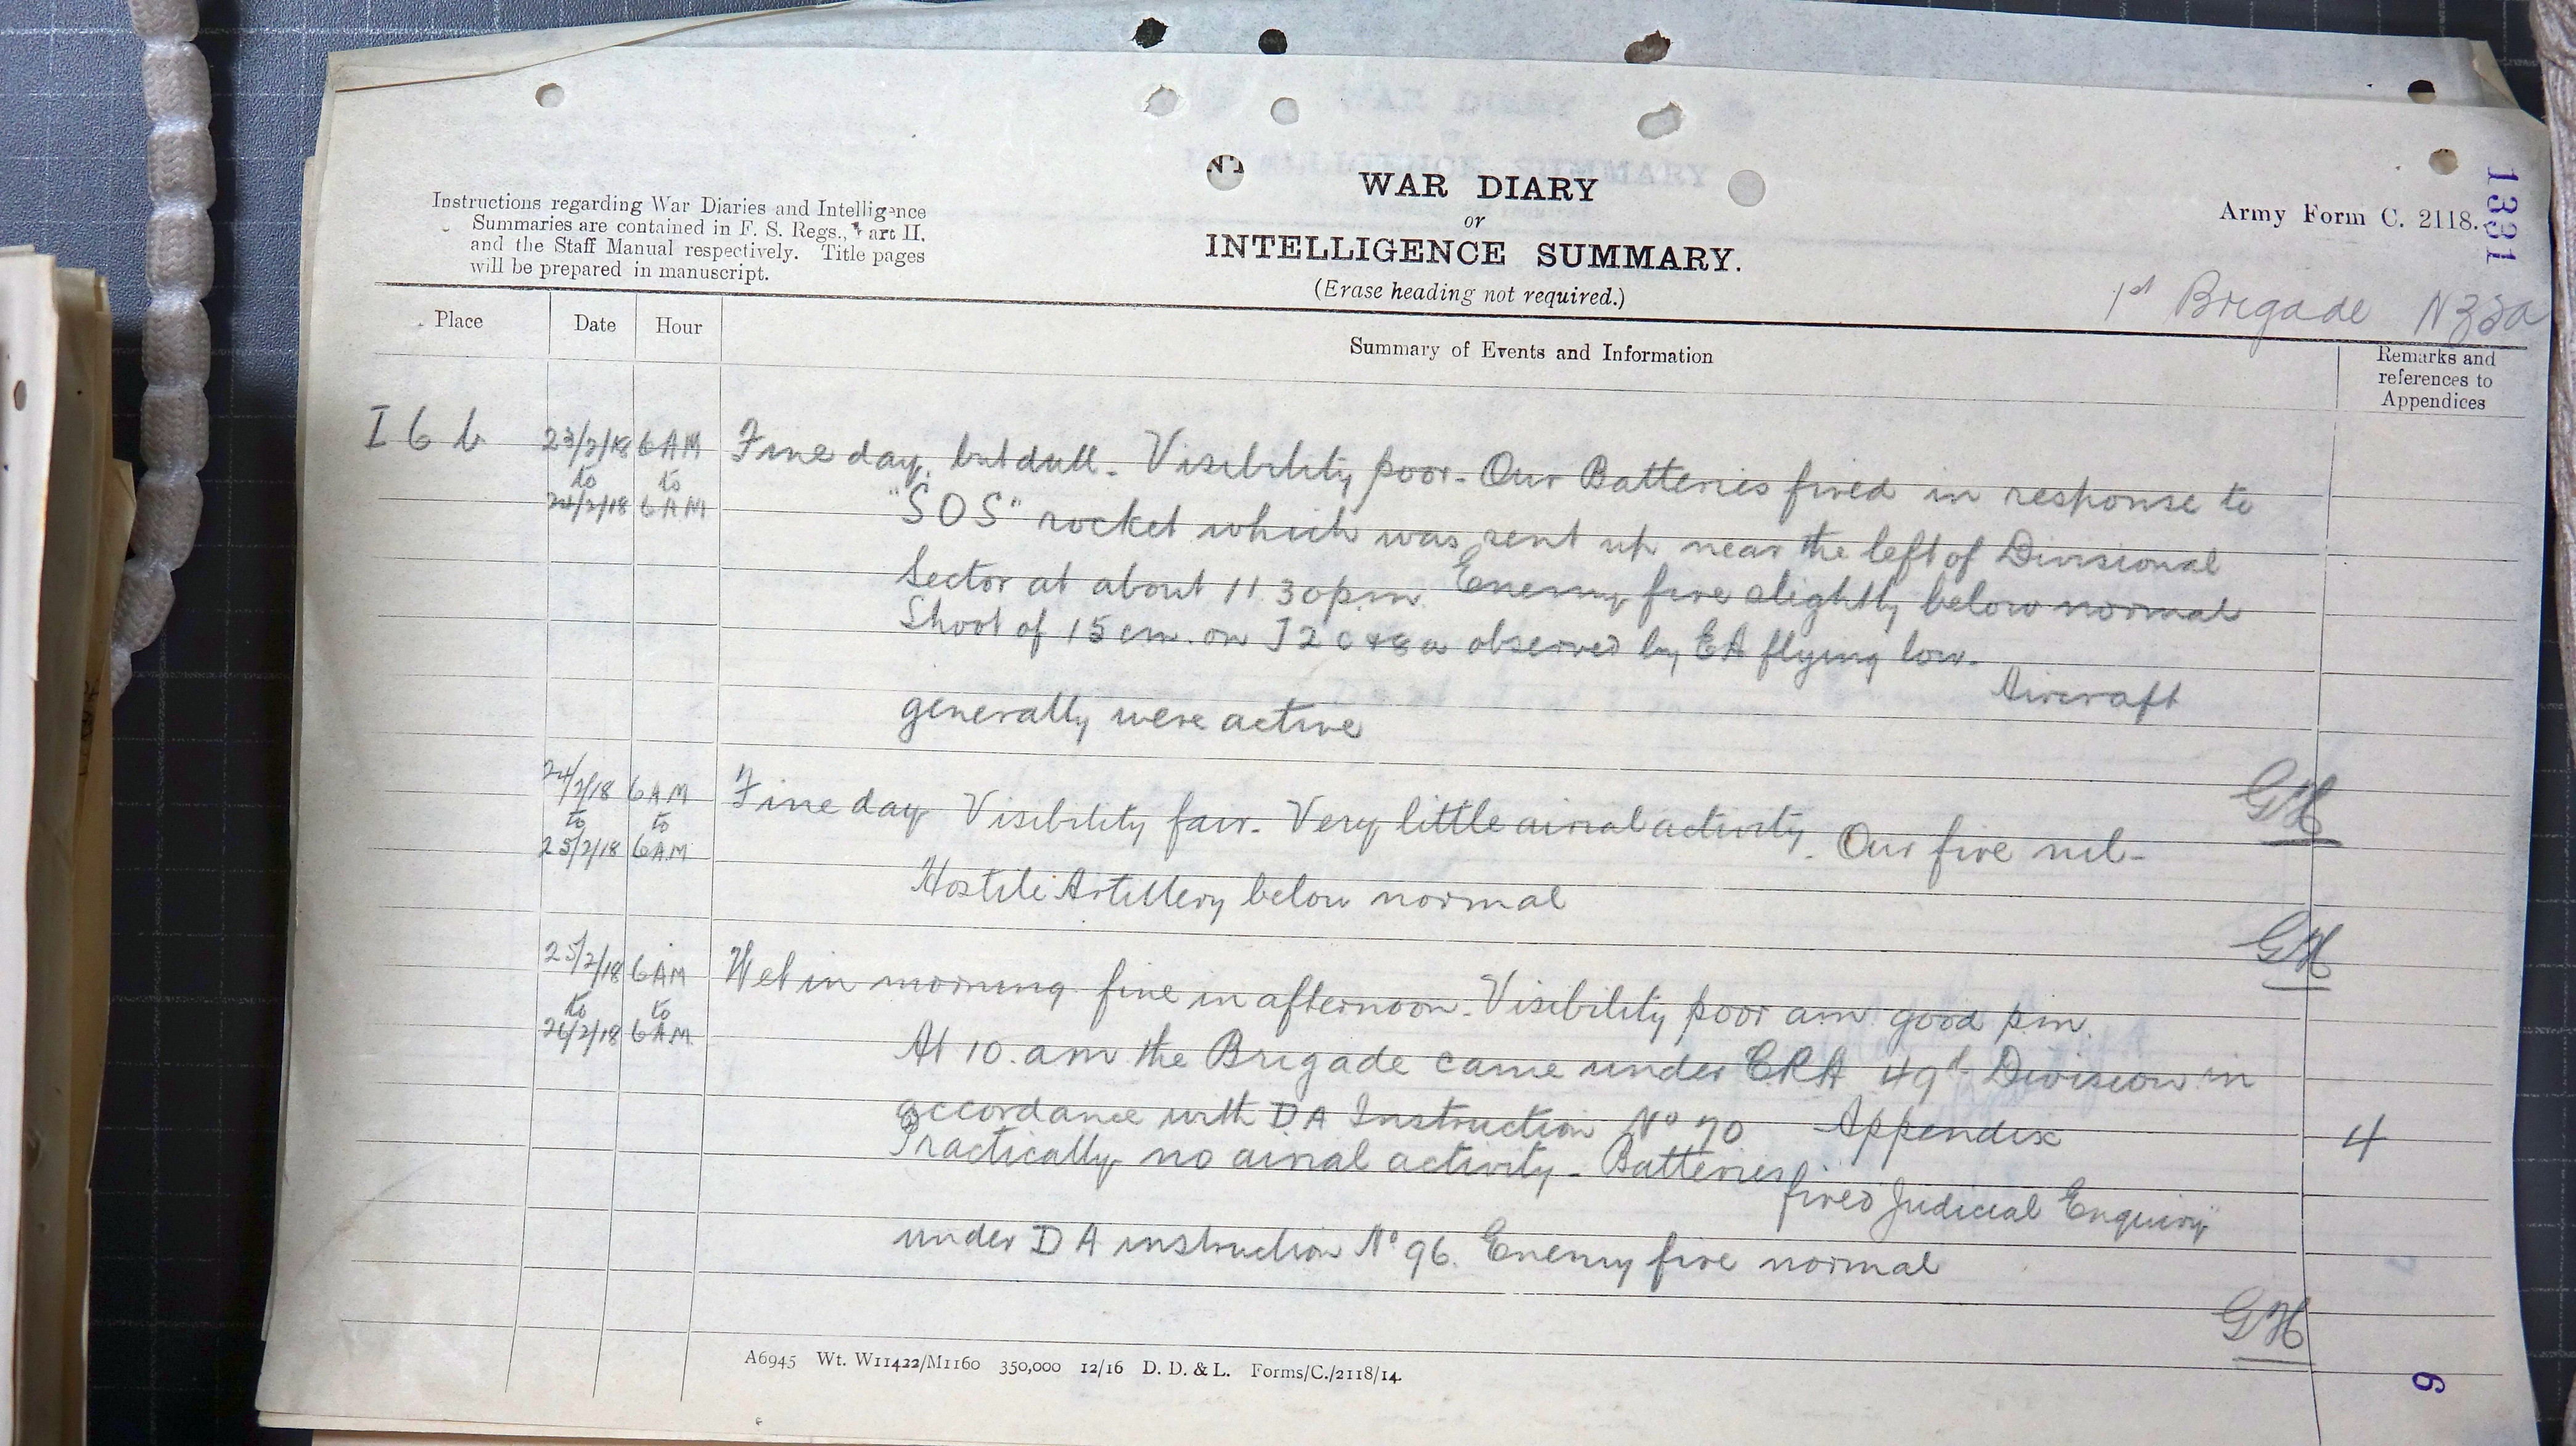 1331
WAR DIARY
or
INTELLIGENCE SUMMARY.
(Erase heading not required.)
Instructions regarding War Diaries and Intelligence
Summaries are contained in F. S. Regs., Part II.
and the Staff Manual respectively. Title pages
will be prepared in manuscript.
Army Form C. 2118.
1st Brigade NZFA
Place Date Hour Summary of Events and Information Remarks and
references to
Appendices
I 6 b 23/2/18 6 AM Fine day, but dull - Visibility poor - Our Batteries fired in response to
to to
24/2/18 6 AM "SOS" rocket which was sent up near the left of Divisional
Sector at about 11 30 p.m. Enemy fire slightly below normal
Shoot of 15 cm. on J 2 c & 8 a observed by EA flying low.
Aircraft
generally were active
GH
24/2/18 6 AM Fine day Visibility fair - Very little airial activity. Our fire nil -
to to
25/2/18 6 AM Hostile Artillery below normal
GH
25/2/18 6 AM Wet in morning fine in afternoon - Visibility poor am good pm.
to to
26/2/18 6 AM At 10. am the Brigade came under CRA 49th Division in
accordance with DA Instruction No 70 Appendix 4
Practically no airial activity - Batteries
fired Judicial Enquiry"
under DA instruction No 96. Enemy fire normal
GH
A6945 Wt. W11422/M1160 350,000 12/16 D. D. & L. Forms/C./2118/14.
6